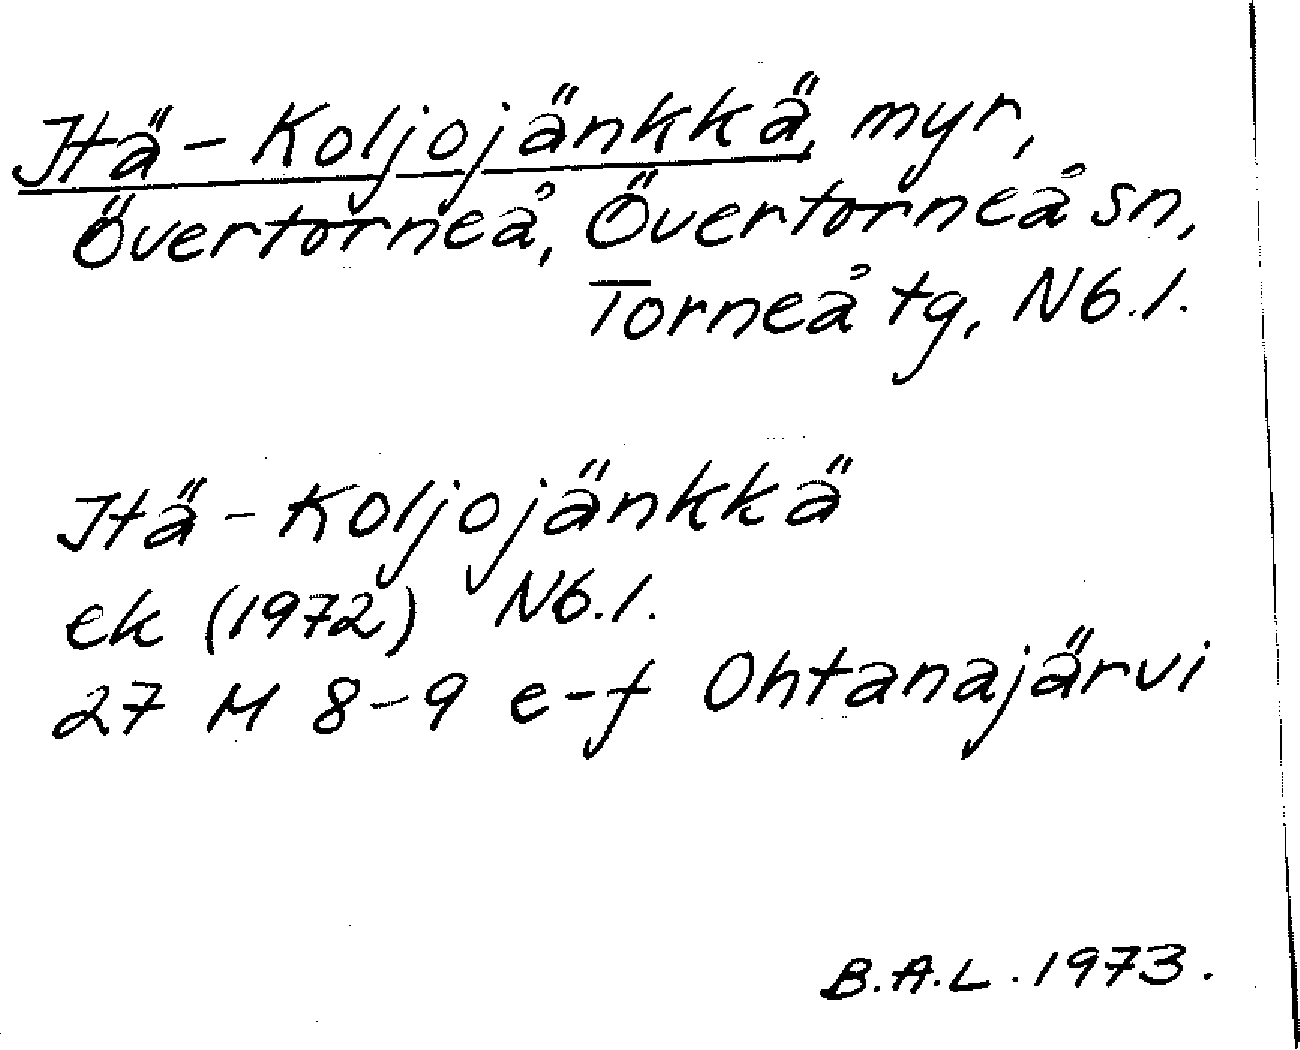 Itä-Koljojänkkä, myr,
Övertorneå, Övertorneå sn,
Torneå tg, Nb.l.
Itä-Koljojänkkä
ek (1972) Nb.l.
27 M 8-9 e-f Ohtanajärvi
B.A.L. 1973.